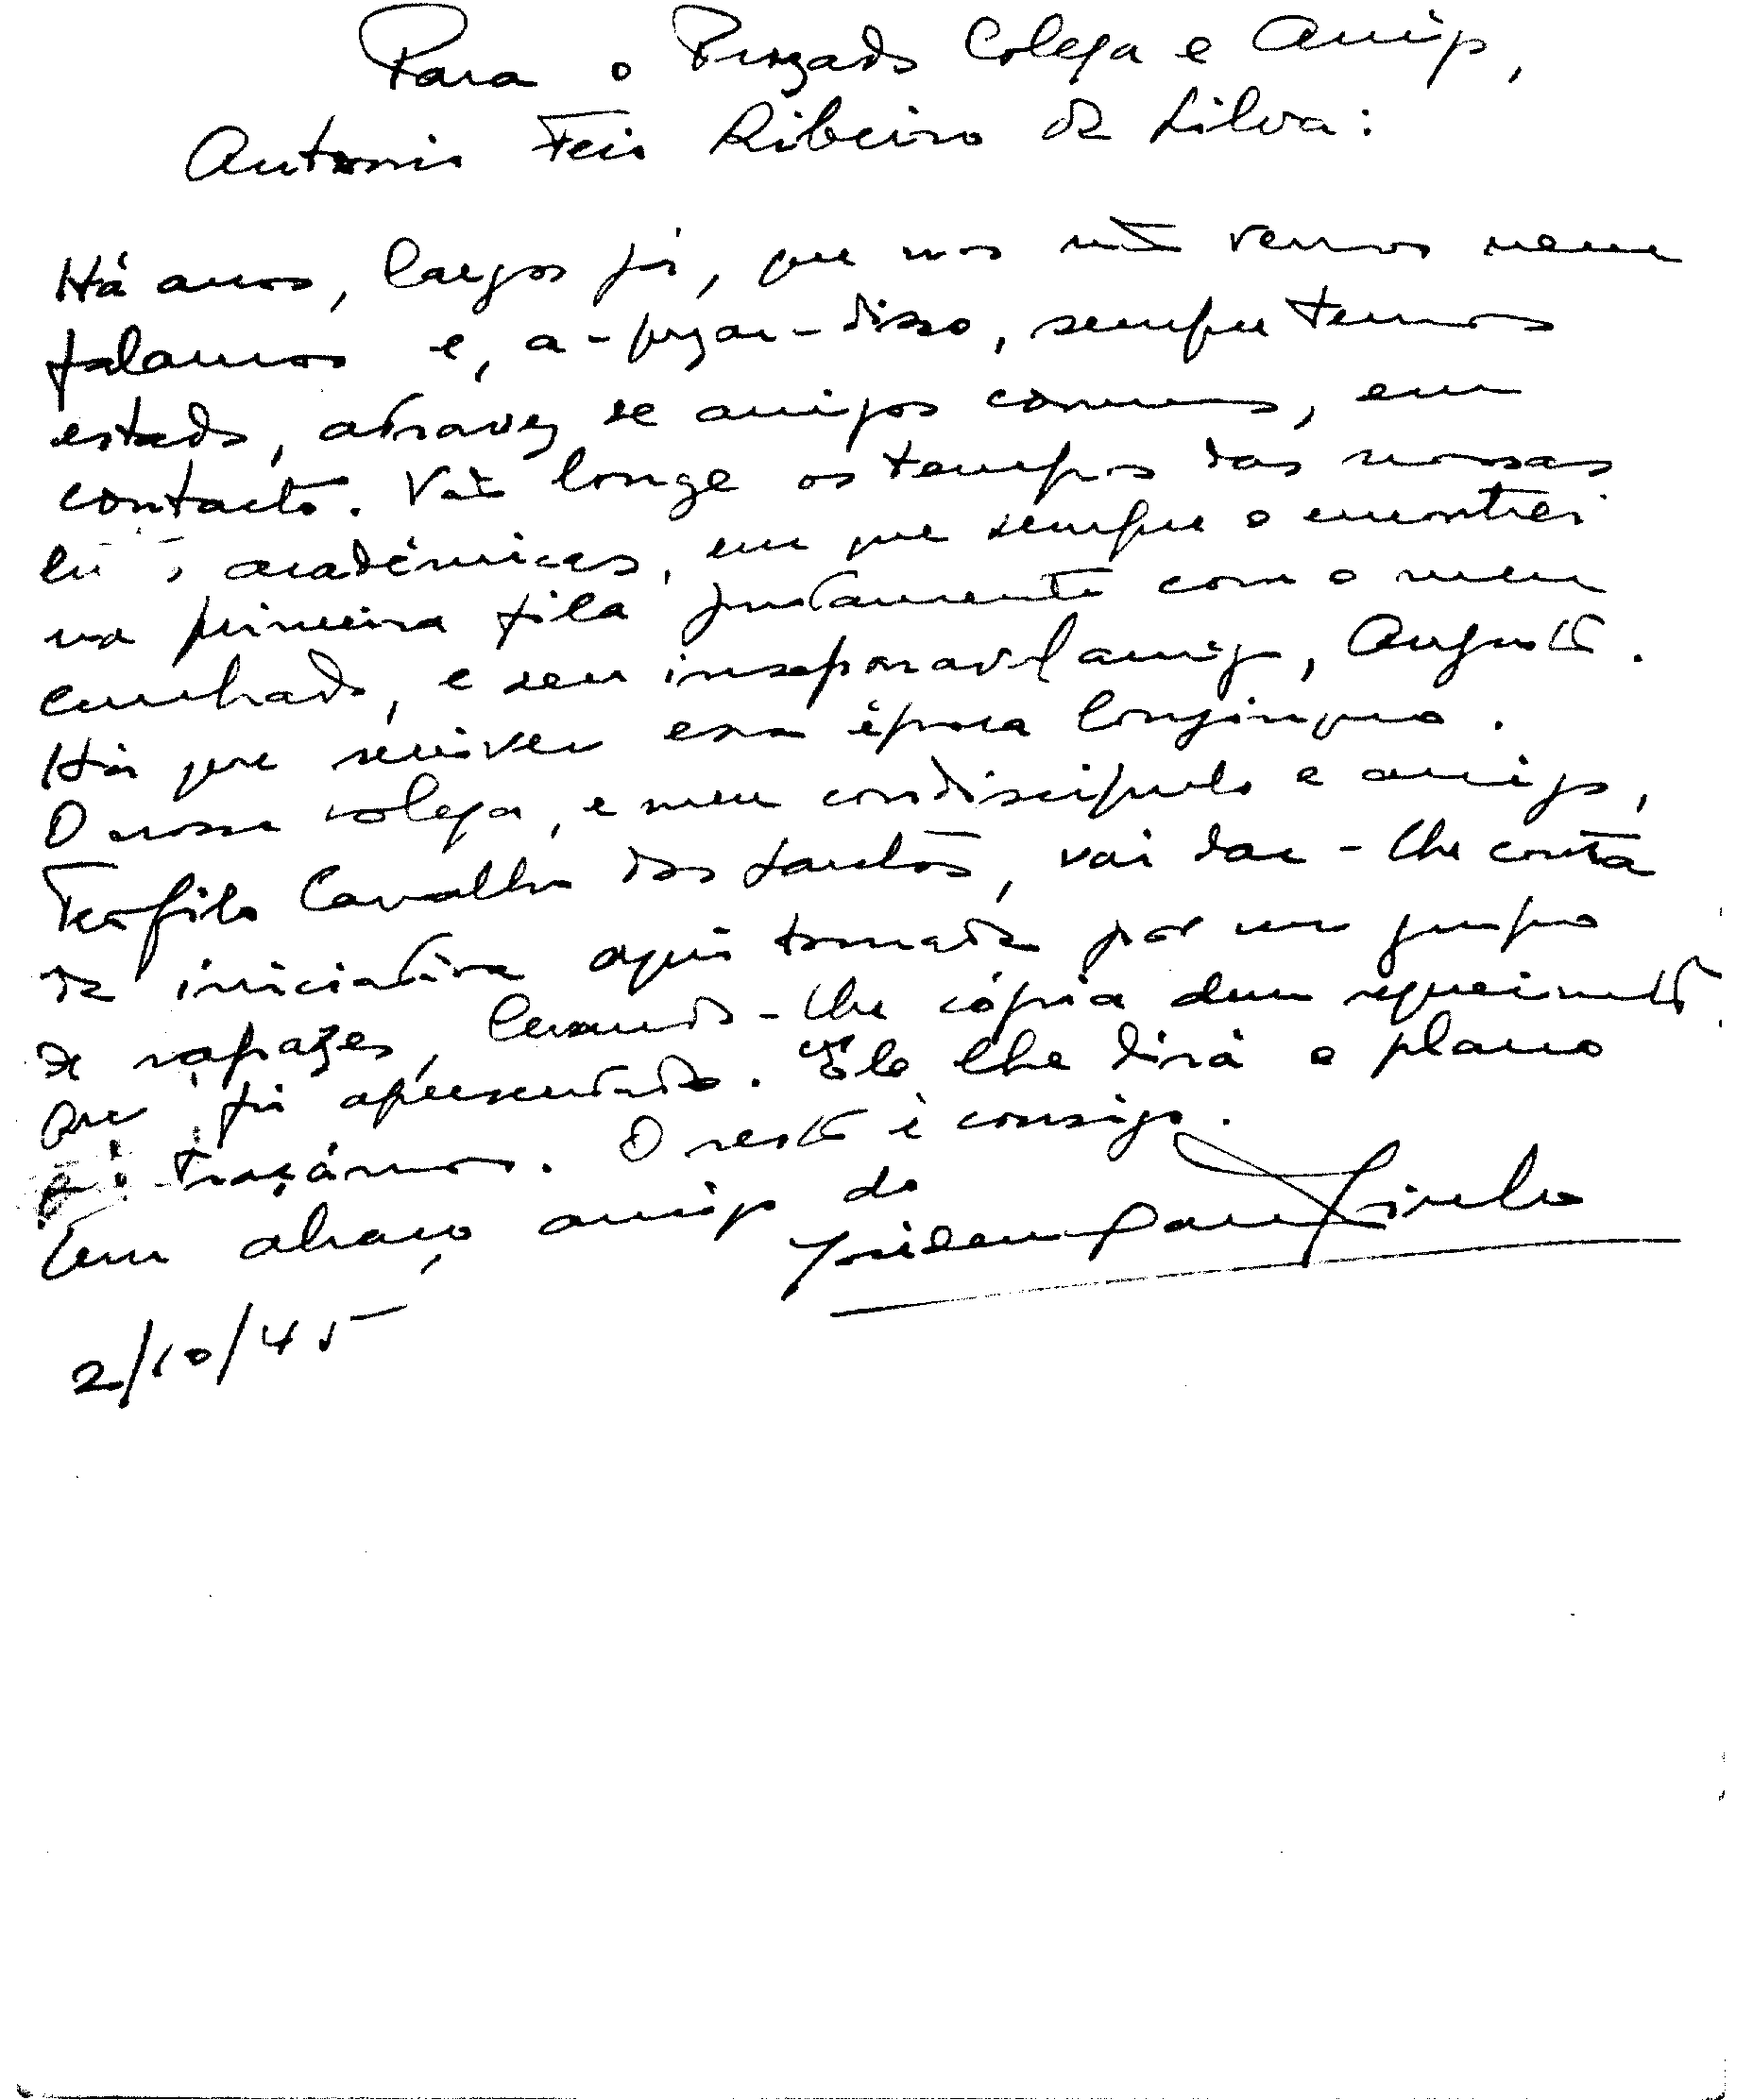 Para o Prezado Colega e Amigo,
Antonio Feio Ribeiro da Silva:
Há anos, largos já, que nos não vemos nem
falamos e, a-pezar-disso, sempre temos
estado, atravez de amigos comuns, em
contacto. Vão longe os tempos das nossas
académicas, em que sempre o encontrei
na primeira fila juntamente com o meu
cunhado, e seu inseparavel amigo, Augusto.
Há que reviver essa época longinqua.
O nosso colega, e meu condiscipulo e amigo,
Teofilo Carvalho dos Santos, vai dar-lhe conta
da iniciativa aqui tomada por um grupo
de rapazes, levando-lhe cópia dum requerimento
que foi apresentado. Ele lhe dirá o plano
q. traçámos. O resto é consigo.
Um abraço amigo do
2/10/45